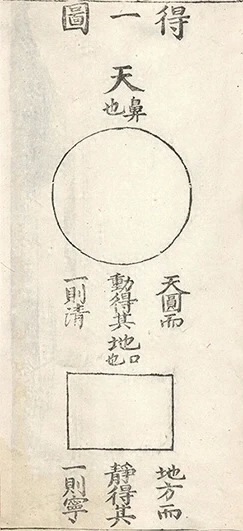 得一圖
天
鼻也
天圓而
動得其
一則清
地
口也
地方而
靜得其
一則寧